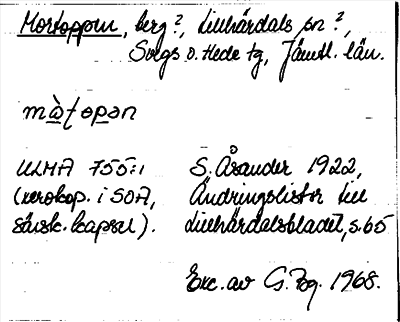 Mortoppen, berg?, Lillhärdals sn?,
Svegs o. Hede tg, Jämtl. län.
mà̱topən
ULMA 755:1
(xerokop. i SOA,
särsk. kapsel).
S. Åsander 1922,
Ändringslistor till
Lillhärdalsbladet, s. 65
Exc. av G. Bg. 1968.